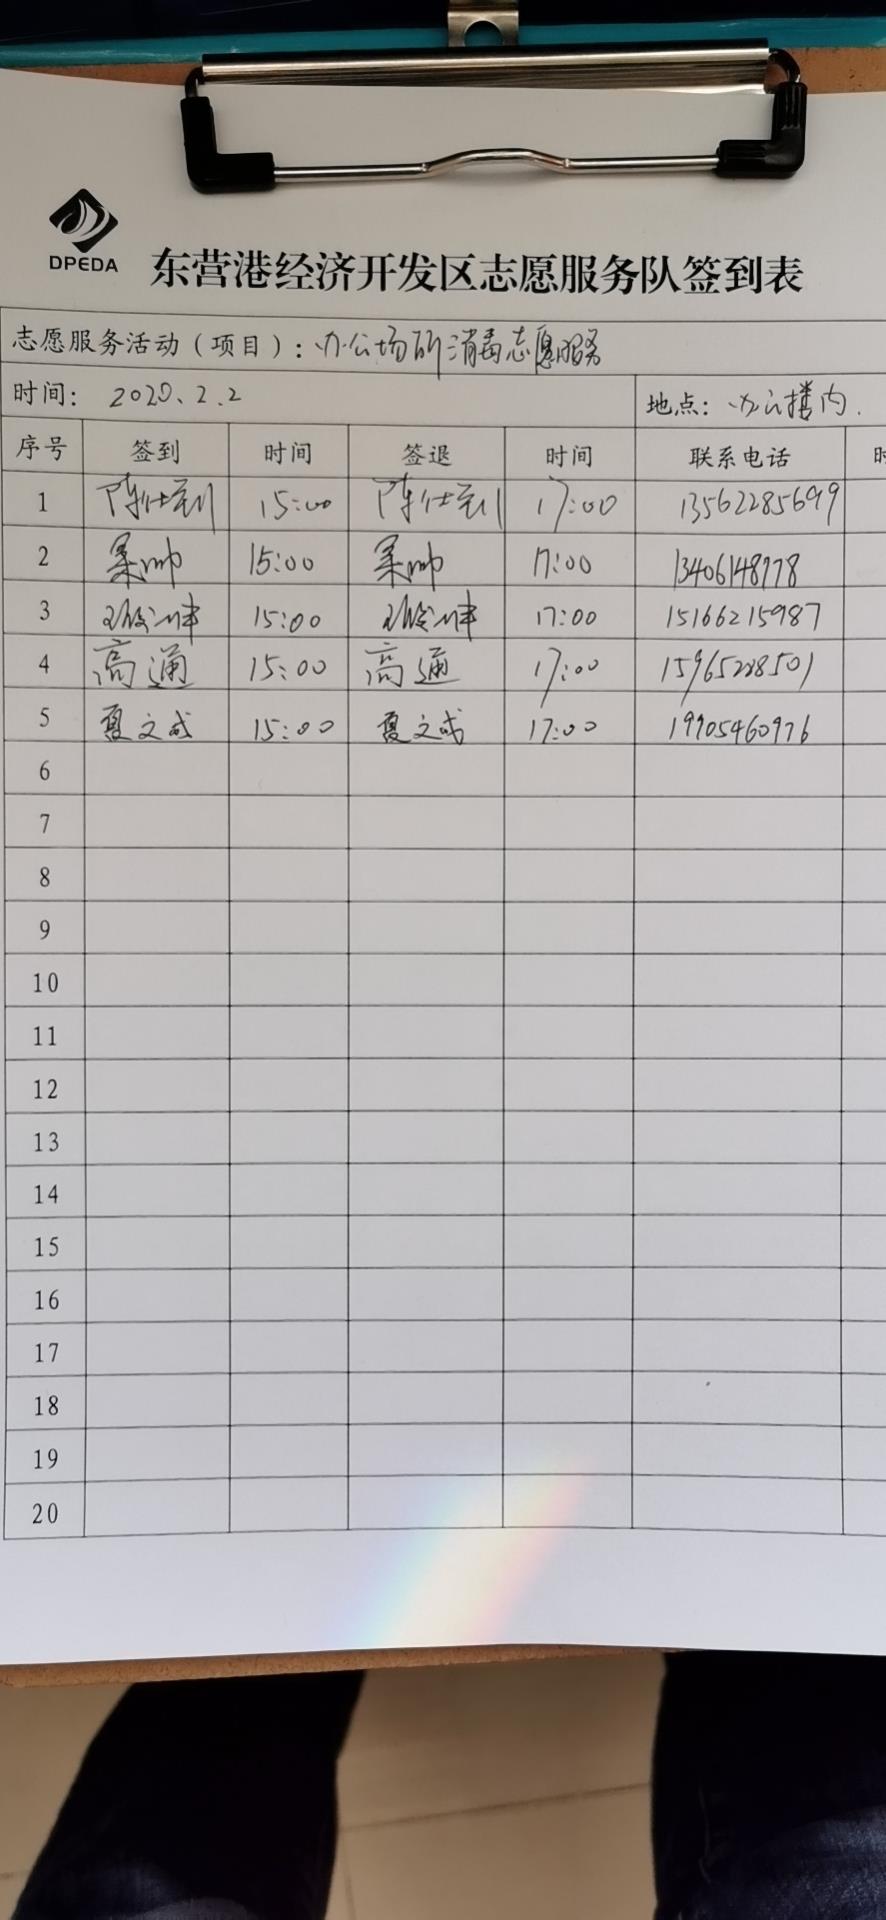 DPEDA
东营港经济开发区志愿服务队签到表
志愿服务活动（项目）：办公场所消毒志愿服务
时间：2020.2.2 地点：办公楼内.
序号 签到 时间 签退 时间 联系电话 时
1 15:00 17:00 13562285699
2 15:00 17:00 13406148978
3 15:00 17:00 15166215987
4 高通 15:00 高通 17:00 15965228501
5 夏文成 15:00 夏文成 17:00 19905460976
6
7
8
9
10
11
12
13
14
15
16
17
18
19
20